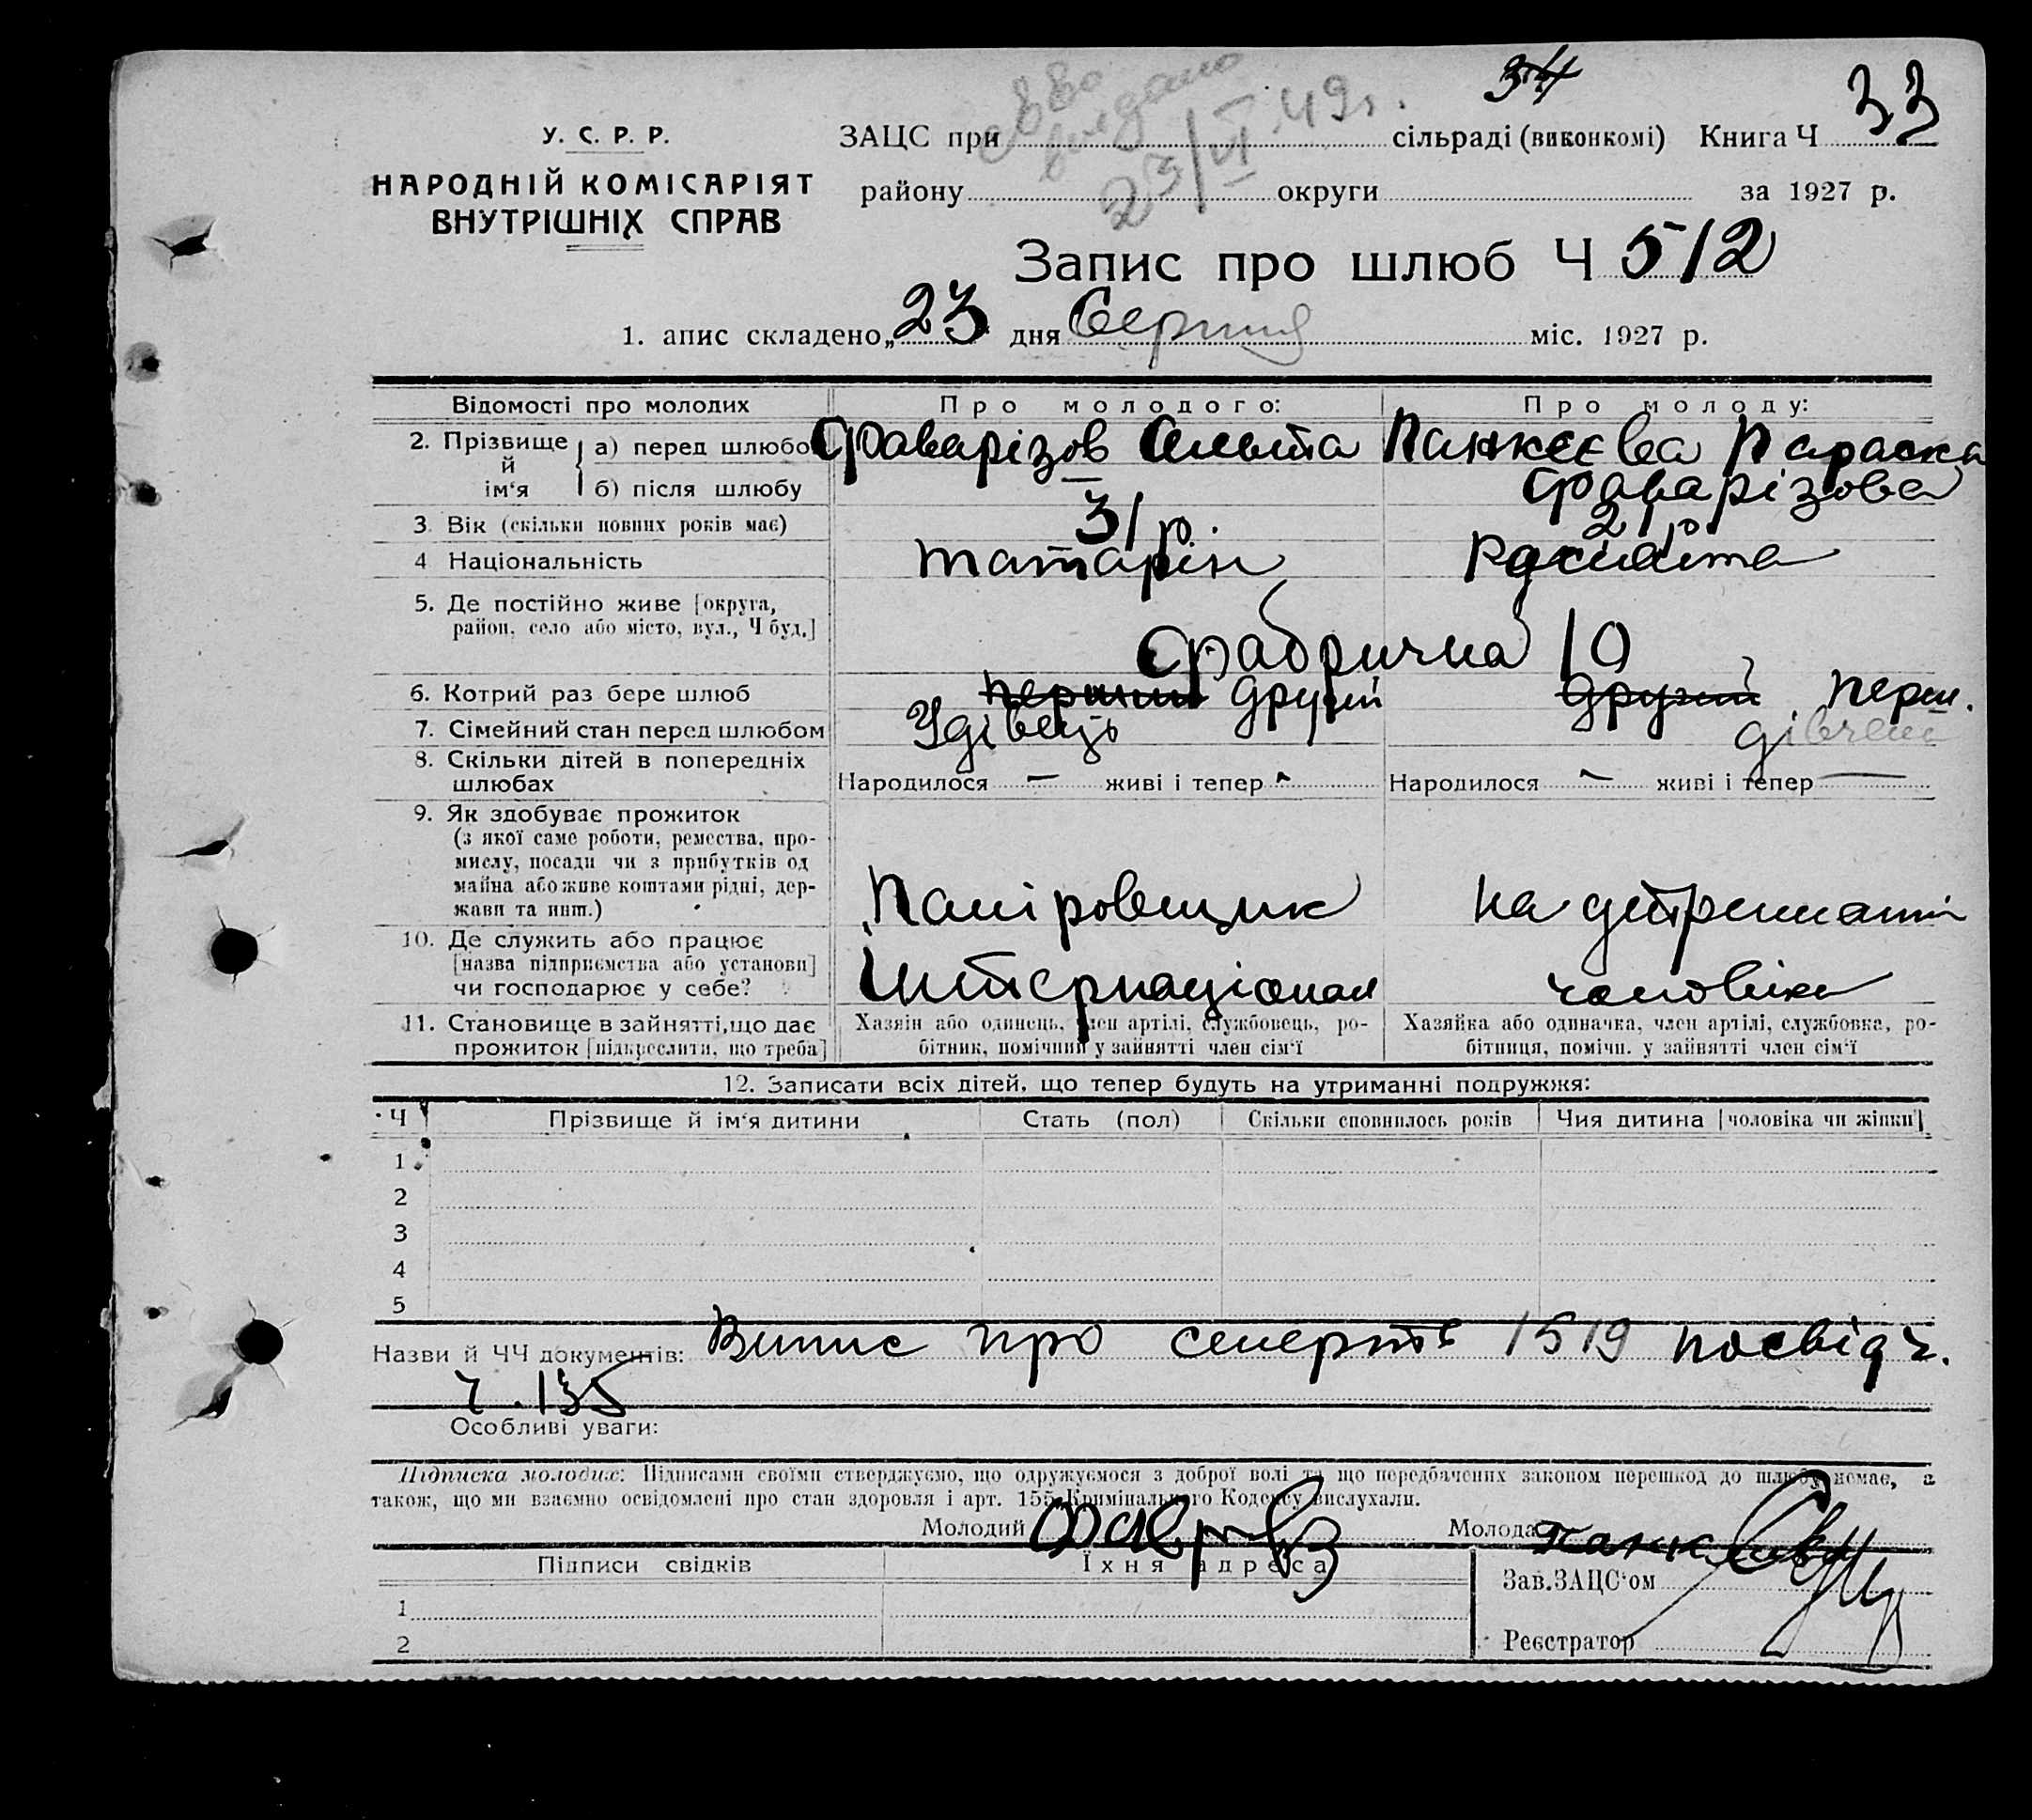 34
33
видано
23/VI.49г.
У. С. Р. Р.
НАРОДНІЙ КОМІСАРІЯТ
ВНУТРІШНІХ СПРАВ
ЗАЦС при сільраді (виконкомі) Книга Ч
району округи за 1927 р.
Запис про шлюб Ч 512
1. апис складено „23 дня Серпня міс. 1927 р.
Відомості про молодих Про молодого: Про молоду:
2. Прізвище й ім'я а) перед шлюбо Фаварізов Панкєєва Параска
б) після шлюбу — Фаварізова
3. Вік (скільки повних років має) 31 р. 21 р.
4 Національність татарін
5. Де постійно живе [округа,
район, село або місто, вул., Ч буд.]
Фабрична 10
6. Котрий раз бере шлюб перший другий другий перш.
7. Сімейний стан перед шлюбом Удівець
8. Скільки дітей в попередніх
шлюбах Народилося — живі і тепер - Народилося — живі і тепер —
9. Як здобуває прожиток
(з якої саме роботи, ремества, про-
мислу, посади чи з прибутків од
майна або живе коштами рідні, дер-
жави та инш.) на
10. Де служить або працює
[назва підприємства або установи]
чи господарює у себе? Интернаціонал чоловіка
11. Становище в зайнятті,що дає
прожиток [підкреслити, що треба]
Хазяїн або одинець, член артілі, службовець, ро-
бітник, помічний у зайнятті член сім'ї
Хазяйка або одиначка, член артілі, службовка, ро-
бітниця, помічн. у зайнятті член сім'ї
12. Записати всіх дітей, що тепер будуть на утриманні подружжя:
Ч Прізвище й ім'я дитини Стать (пол) Скільки сповнилось років Чия дитина [чоловіка чи жінки]
1
2
3
4
5
Назви й ЧЧ документів: Випис про смерть 1519 посвідч.
ч. 135
Особливі уваги:
Підписка молодих: Підписами своїми стверджуємо, що одружуємося з доброї волі та що передбачених законом перешкод до шлюбу немає, а
також, що ми взаємно освідомлені про стан здоровля і арт. 155 Кримінального Кодексу вислухали.
Молодий Молода
Підписи свідків Їхня адреса
Зав.ЗАЦС'ом
1
2
Реєстратор